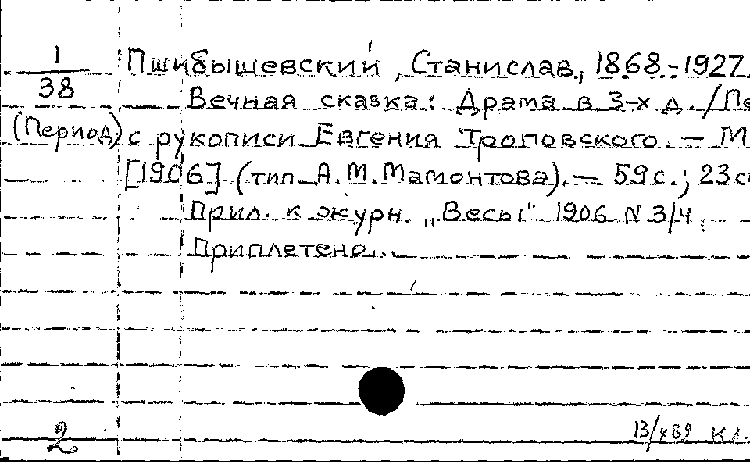 1
38
(Период)
Пшибышевский, Станислав, 1868-1927.
Вечная сказка: Драма в 3-х д. / Пе
с рукописи Евгения Троповского. — М
[1906] (тип. А.М.Мамонтова). — 59с.; 23с
Прил. к журн. „Весы" 1906 N 3/4.
Приплетено.
2
13/X 89 кл.